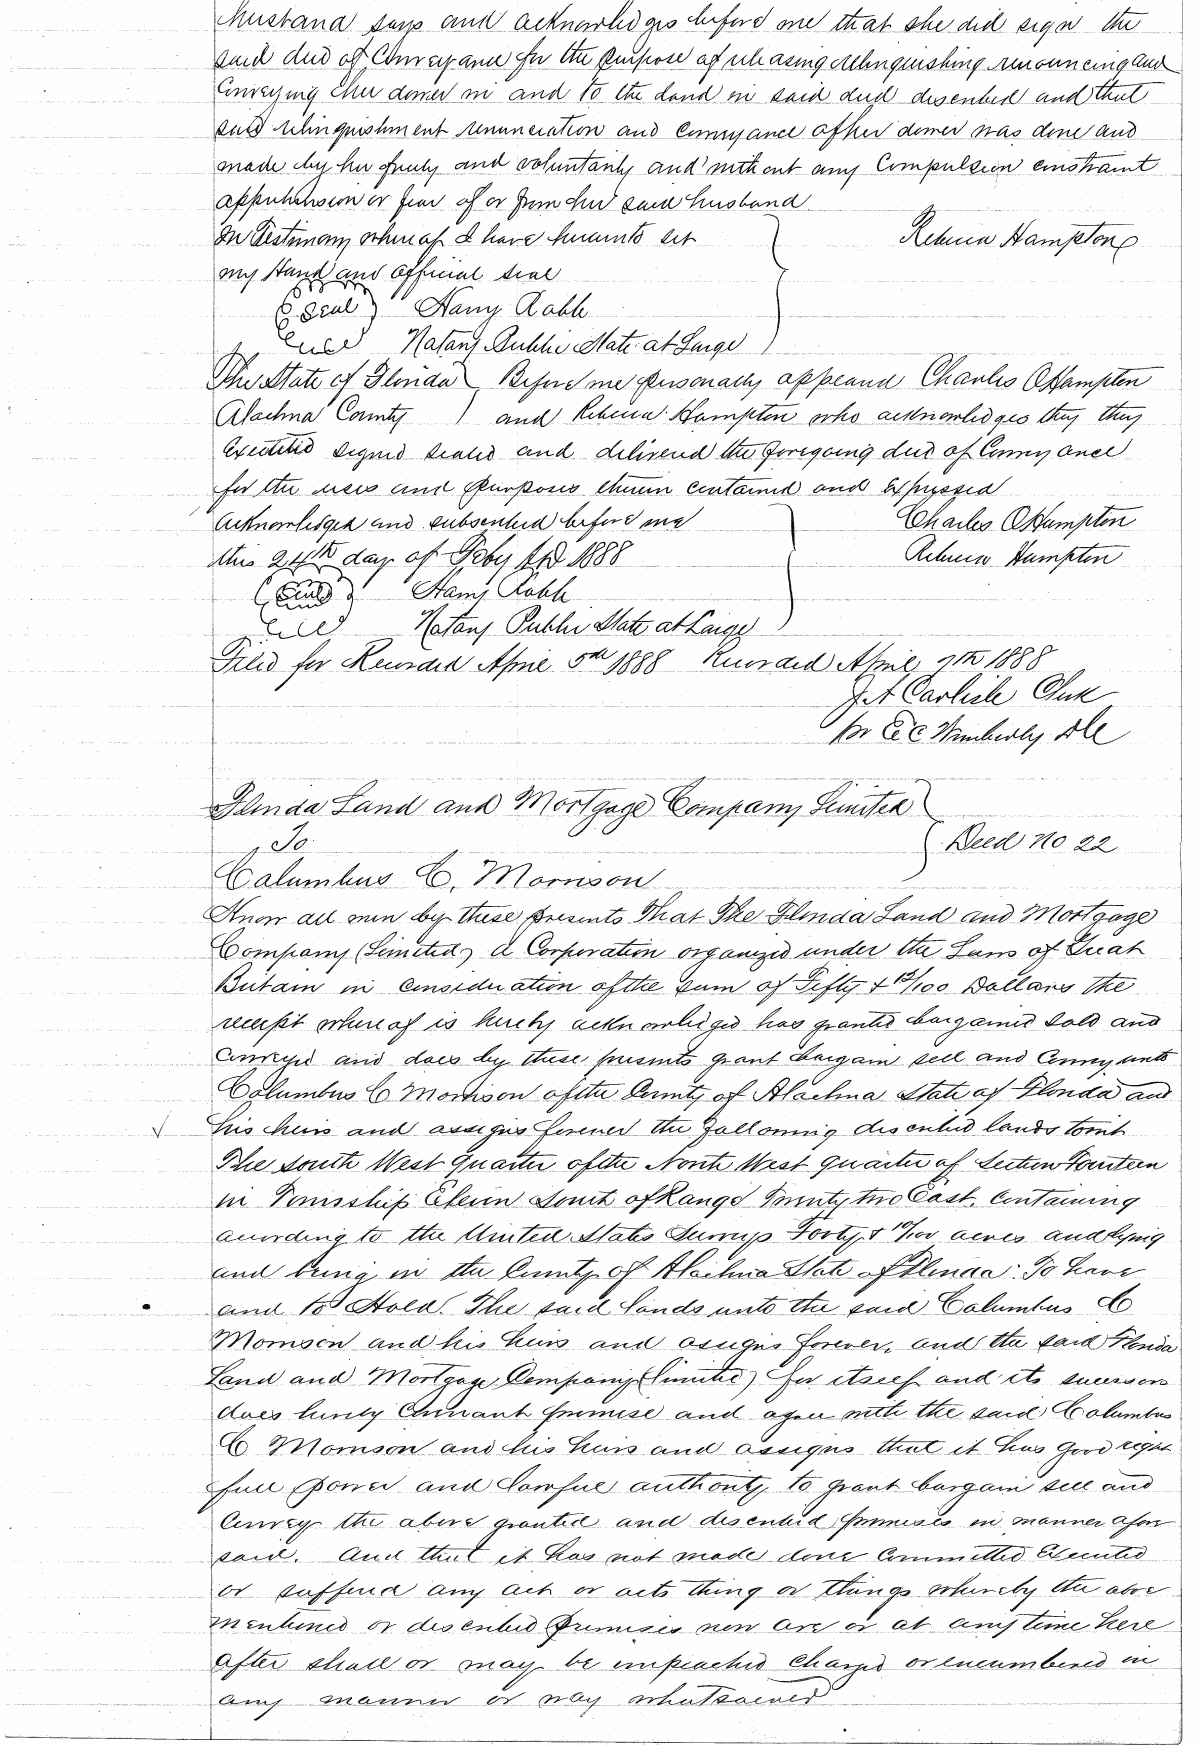 Husband says and acknowledges before me that she did sign the
said deed of Conveyance for the purpose of releasing relinquishing renouncing and
Conveying her dower in and to the land in said deed described and that
said relinquishment renunciation and conveyance of her dower was done and
made by her freely and voluntarily and without any Compulsion constraint
apprehension or fear of or from her said husband
In Testimony whereof I have hereunto set
Rebecca Hampton
my Hand and official seal
(Seal) Harry Rabb
Notary Public State at Large
The State of Florida Before me personally appeared Charles O Hampton
Alachua County and Rebecca Hampton who acknowledges they they
Executed signed sealed and delivered the foregoing deed of Conveyance
for the uses and purposes therein contained and expressed
Acknowledged and subscribed before me
Charles O Hampton
this 24th day of Feby AD 1888
Rebecca Hampton
(Seal) Harry Rabb
Notary Public State at Large
Filed for Recorded April 5th 1888 Recorded April 7th 1888
J A Carlisle Clerk
pr E C Wimberly DC
Florida Land and Mortgage Company Limited
To
Deed No 22
Columbus C. Morrison
Know all men by these presents That The Florida Land and Mortgage
Company (Limited) a Corporation organized under the Laws of Great
Britain in consideration of the sum of Fifty & /100 Dollars the
receipt whereof is hereby acknowledged has granted bargained sold and
conveyed and does by these presents grant bargain sell and Convey unto
Columbus C Morrison of the County of Alachua State of Florida and
his heirs and assigns forever the following described lands towit
The South West quarter of the North West quarter of Section Fourteen
in Township Eleven South of Range Twenty two East, Containing
according to the United States Surveys Forty & 10/100 acres and lying
and being in the County of Alachua State of Florida. To have
and to Hold. The said lands unto the said Columbus C
Morrison and his heirs and assigns forever, and the said Florida
Land and Mortgage Company (Limited) for itself and its successors
does hereby Covenant promise and agree with the said Columbus
C Morrison and his heirs and assigns that it has good right
full power and lawful authority to grant bargain sell and
Convey the above granted and described premises in manner afore
said. And that it has not made done Committed Executed
or suffered any act or acts thing or things whereby the above
mentioned or described premises now are or at any time here
after shall or may be impeached charged or encumbered in
any manner or way whatsoever